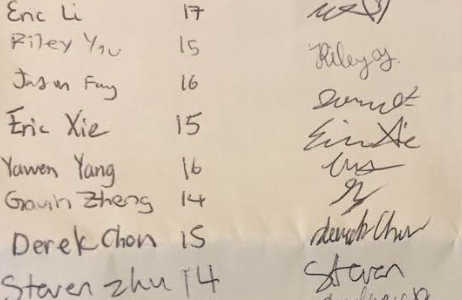 Eric Li 17
Riley You 15 Rileyy.
Jason Fang 16
Eric Xie 15 Eric Xie
Yawen Yang 16
Gavin Zheng 14
Derek Chon 15 derek Chon
Steven zhu 14 Steven